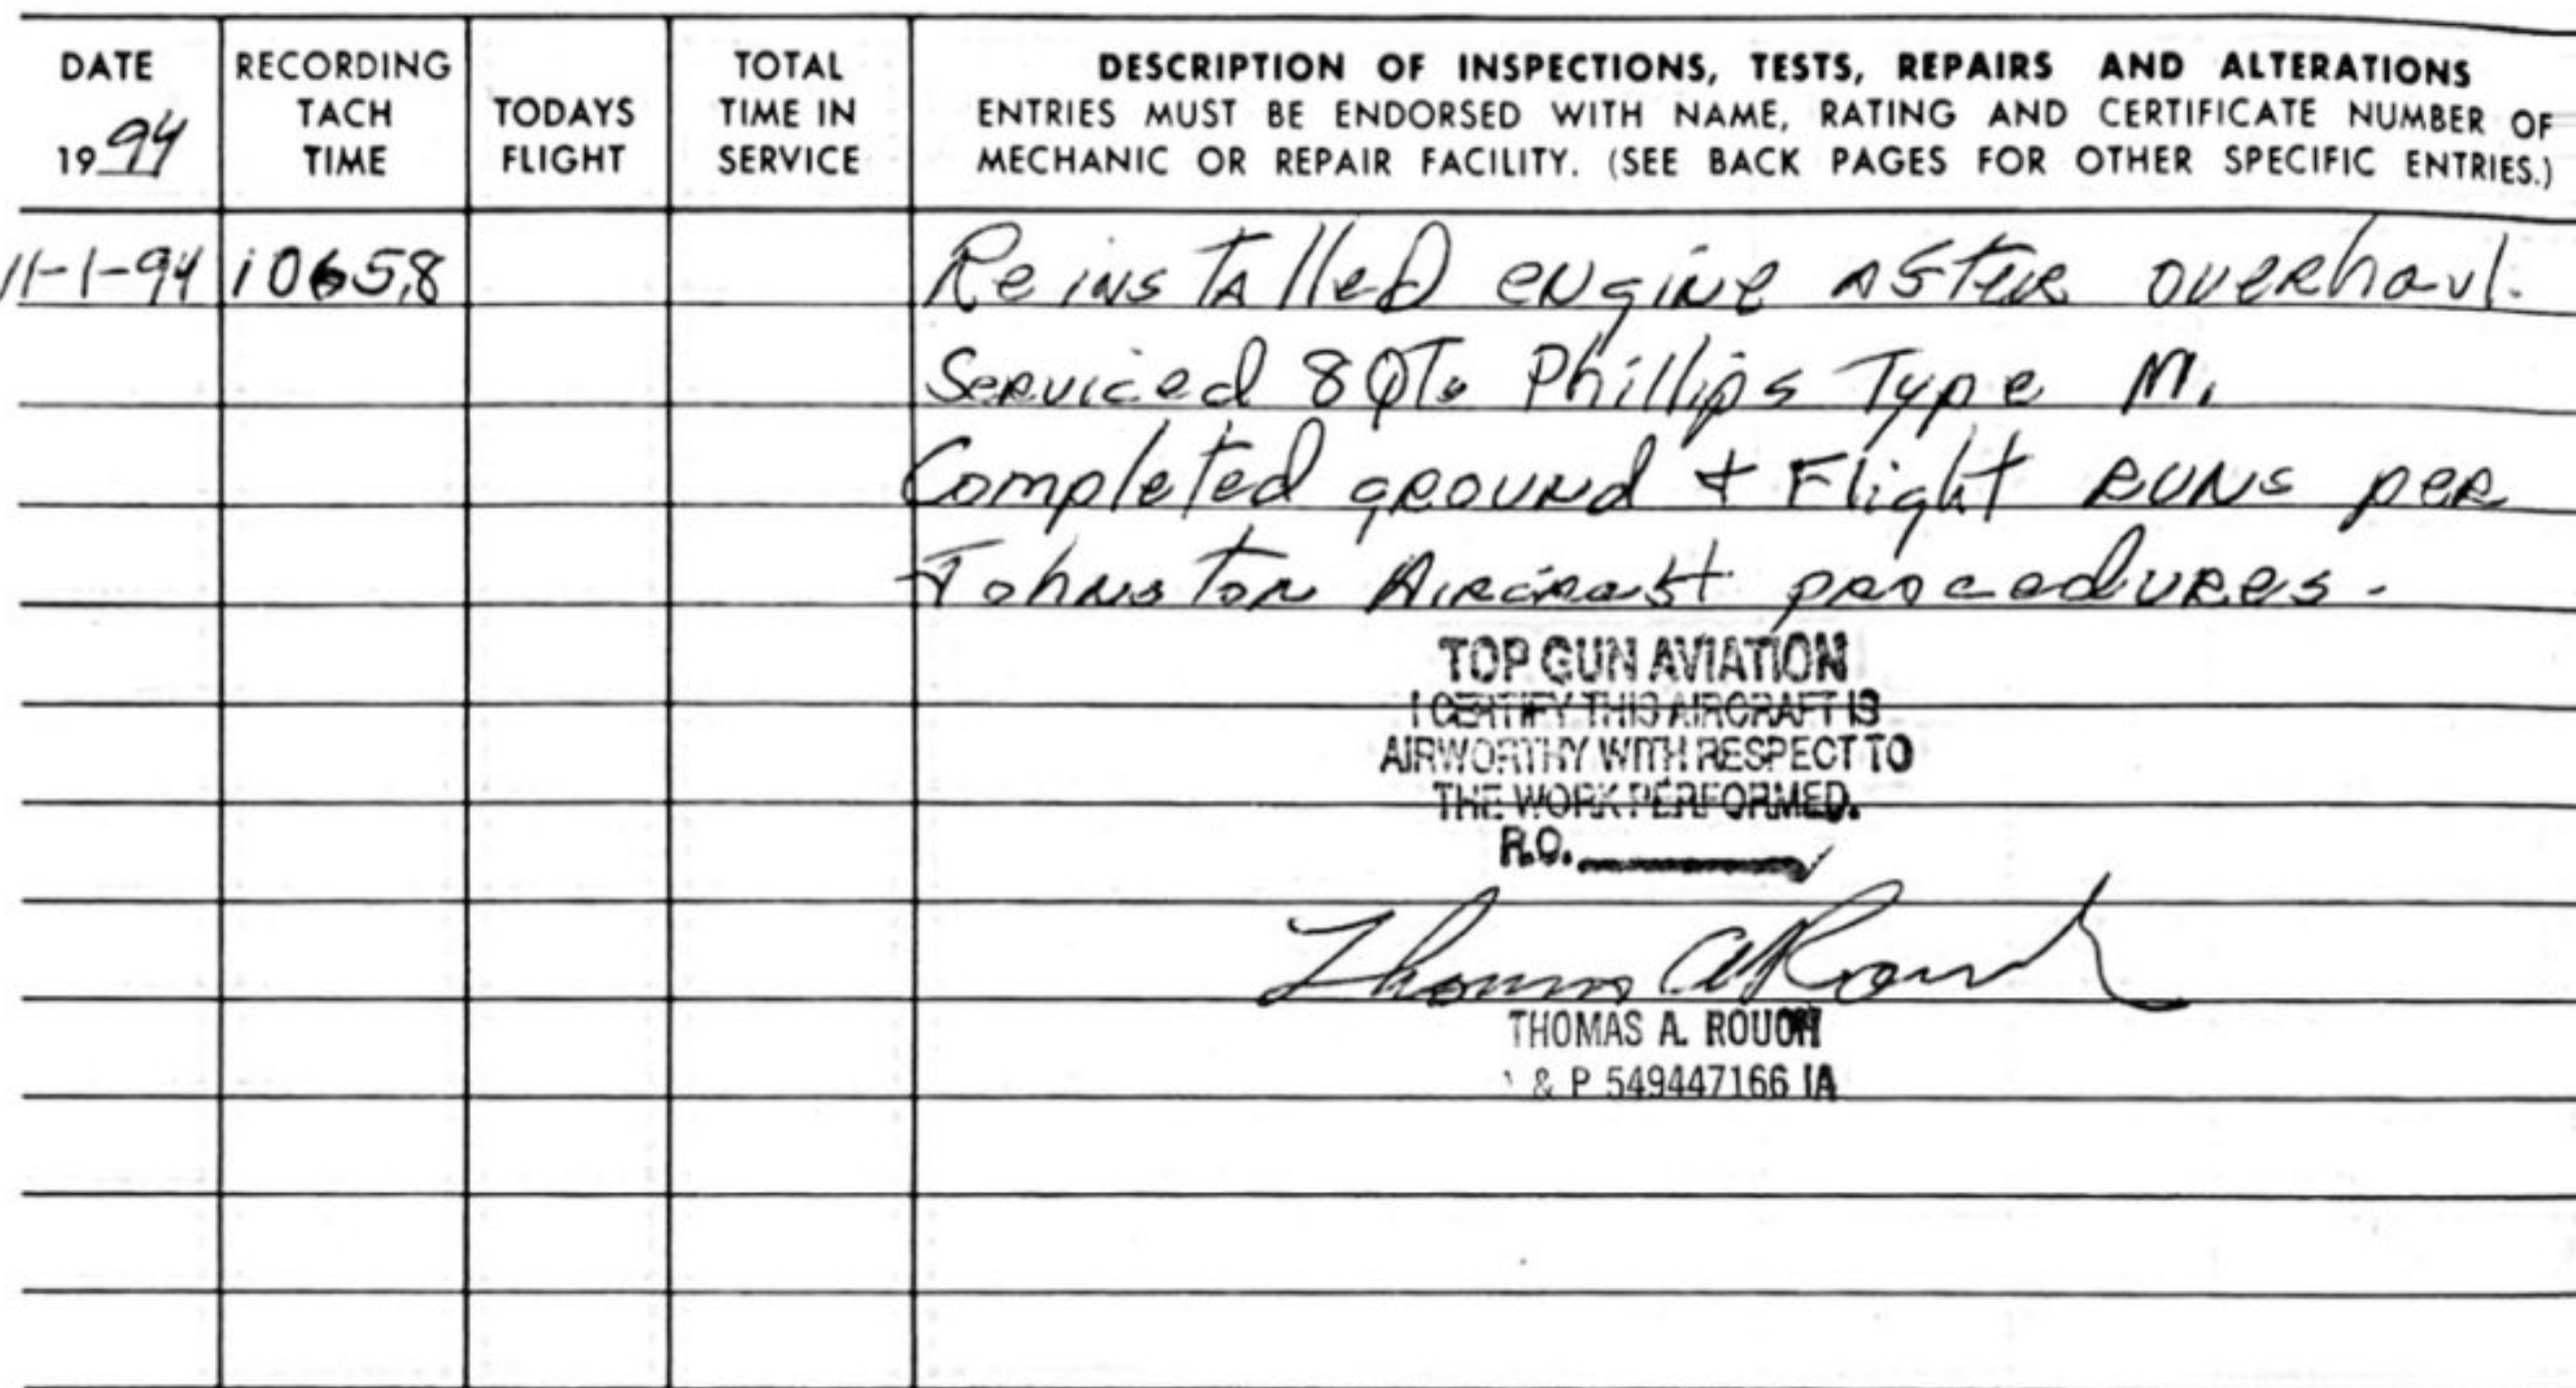 DATE RECORDING TACH TIME TODAYS FLIGHT TOTAL TIME IN SERVICE
1994
DESCRIPTION OF INSPECTIONS, TESTS, REPAIRS AND ALTERATIONS
ENTRIES MUST BE ENDORSED WITH NAME, RATING AND CERTIFICATE NUMBER OF
MECHANIC OR REPAIR FACILITY. (SEE BACK PAGES FOR OTHER SPECIFIC ENTRIES.)
11-1-94 1065.8 Reinstalled engine after overhaul.
Serviced 8 QTs Phillips Type M.
Completed ground + Flight runs per
Johnston Aircraft procedures.
TOP GUN AVIATION
I CERTIFY THIS AIRCRAFT IS
AIRWORTHY WITH RESPECT TO
THE WORK PERFORMED.
R.O.
Thomas A Rouch
THOMAS A. ROUCH
& P 549447166 IA